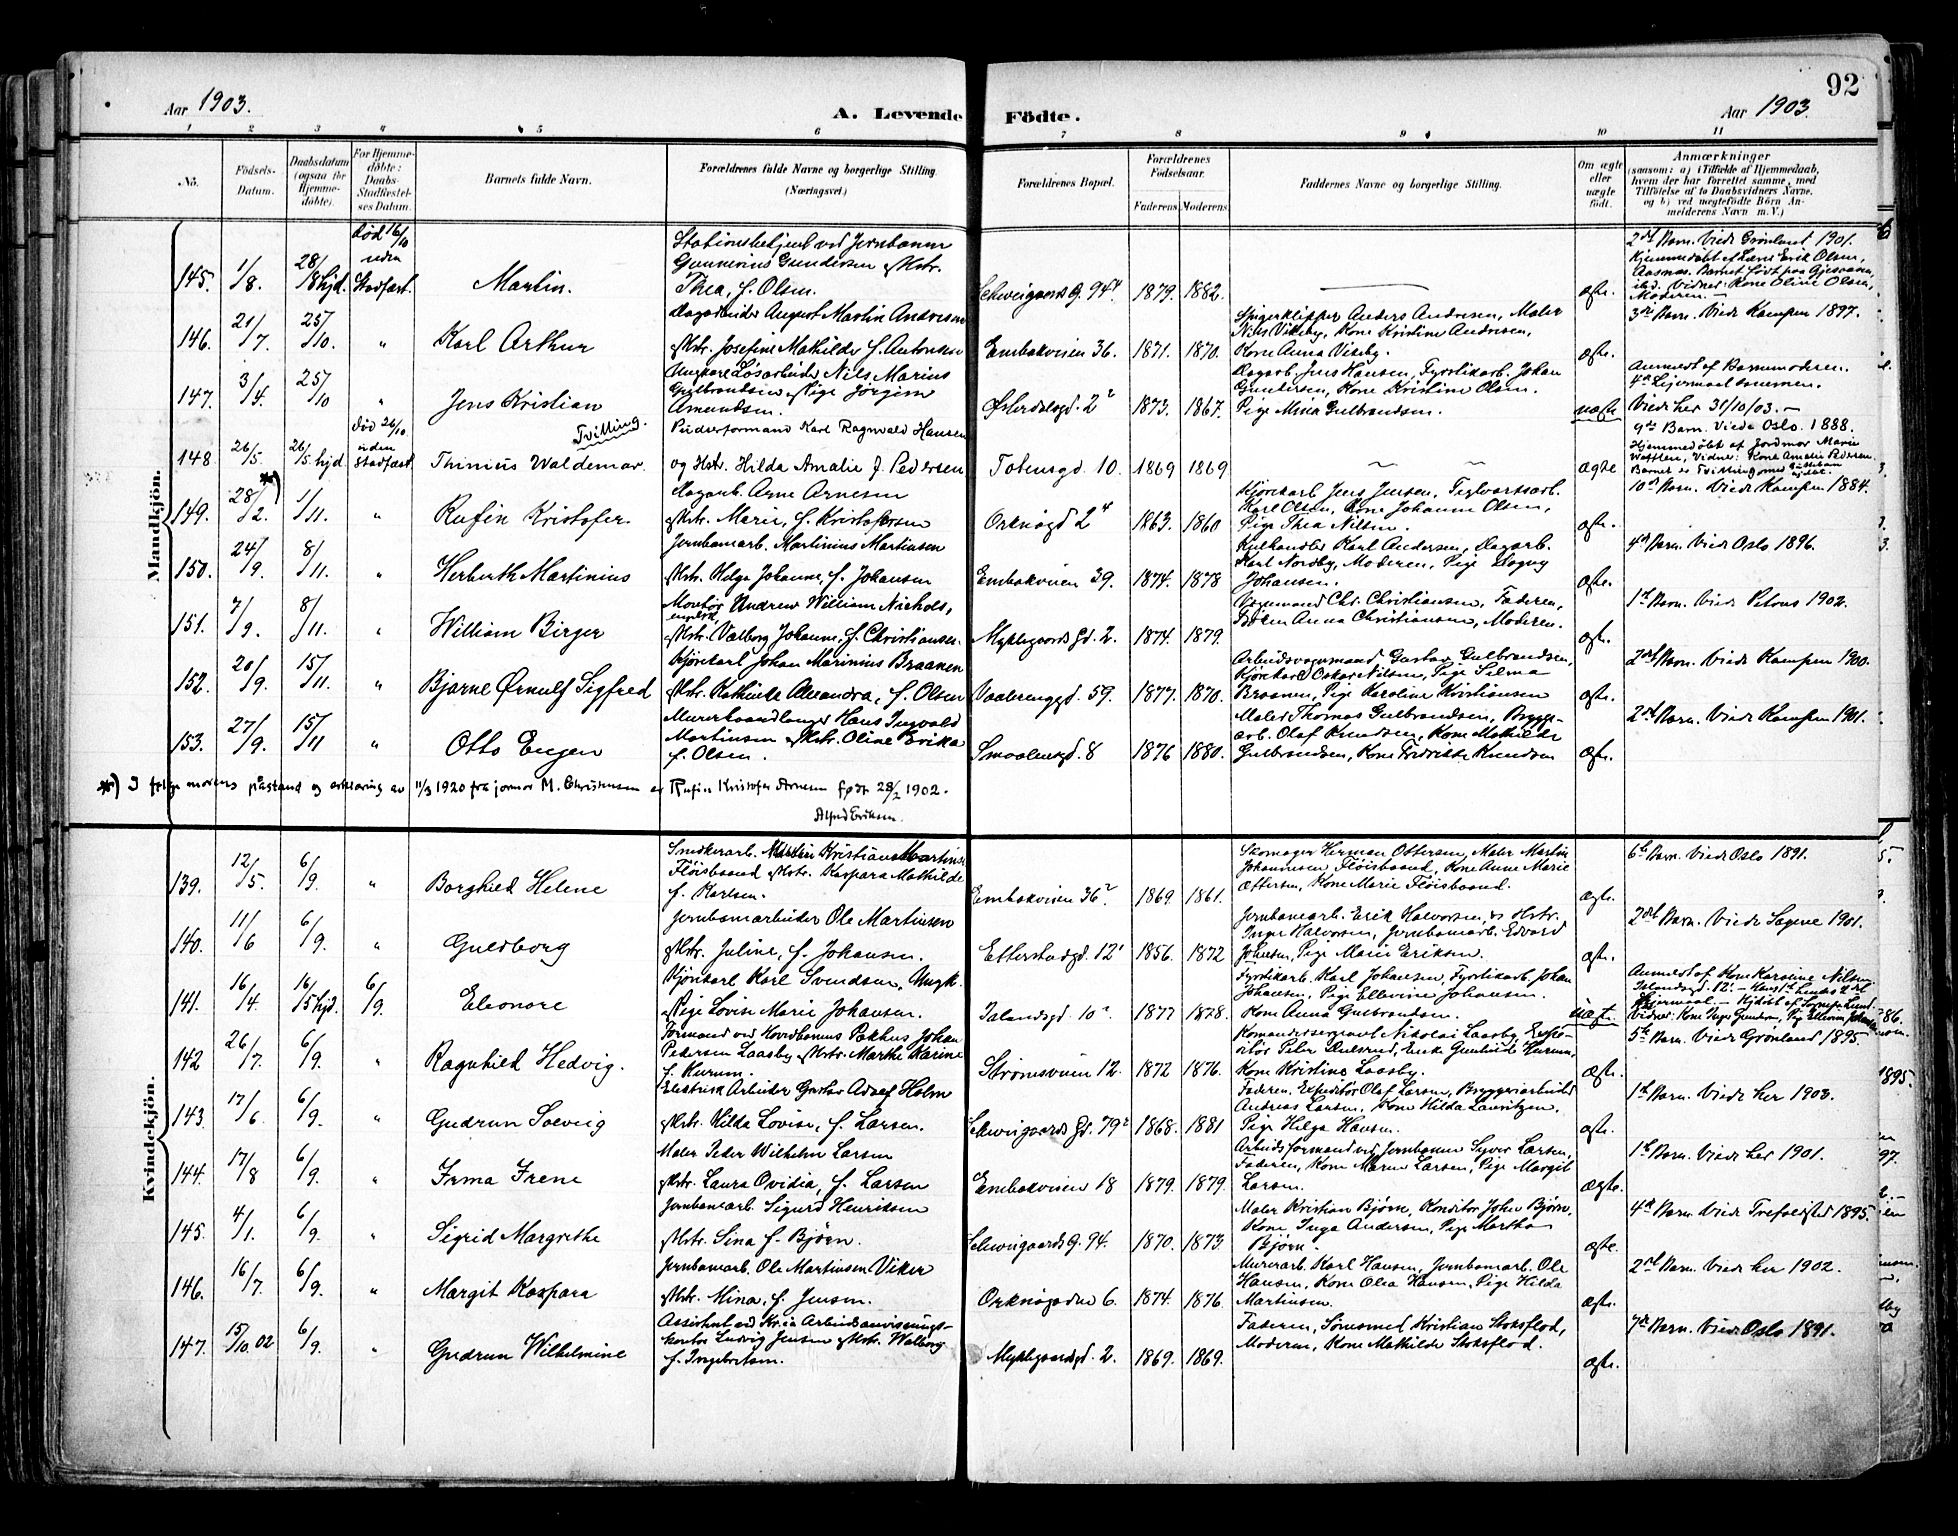 92
Aar 1903.
A. Levende Födte.
Aar 1903.
1 2 3 4 5 6 7 8 9 10 11
No.
Födsels-Datum.
Daabsdatum (ogsaa for Hjemmedöbte).
For Hjemmedöbte: Daabs-Stadfæstelses Datum.
Barnets fulde Navn.
Forældrenes fulde Navne og borgerlige Stilling. (Næringsvei.)
Forældrenes Bopæl.
Forældrenes Födselsaar.
Faderens Moderens
Faddernes Navne og borgerlige Stilling.
Om ægte eller uægte födt.
Anmærkninger
(saasom: a) i Tilfælde af Hjemmedaab, hvem der har forrettet samme, med Tilföielse af to Daabsvidners Navne, og b) ved uegtefödte Börn Anmelderens Navn m. V.)
Mandkjön.
145. 1/8. 28/18 hjd. død 16/10 uden Stadfæst. Martin.
Stationsbetjent ved Jernbanen
Gunnerius Gundersen og Hstr.
Thea, f. Olsen. Schweigaards G. 94 1879. 1882. ægte.
2det Barn. Viede Grønland 1901.
Hjemmedøbt af Lars Erik Olsen,
Vidner: Kone Oline Olsen,
Moderen.
146. 21/7. 25/10. " Karl Arthur
Dagarbeider August Martin Andresen
og Hstr. Josefine Mathilde f. Antonsen Enebakveien 36. 1871. 1870.
Spigerklipper Anders Andresen, Maler
Nils Vikeby, Kone Kristine Andresen,
Kone Anna Vikeby. ægte.
3die Barn. Viede Kampen 1897.
147. 3/4. 25/10 " Jens Kristian
Ungkarl Løsarbeider Nils Marius
Gulbrandsen og Pige Jørgine
Amundsen. Østerdalsgd. 2 1873. 1867.
Dagarb. Jens Hansen, Fyrstikarb. Johan
Gundersen, Kone Kristine Olsen.
Pige Mina Gulbrandsen. uægte
Anmeldt af Barnemoderen.
4de Leiermaal sammen.
Viede her 31/10/03.
148 26/5. 26/5 hjd. død 26/10 uden Stadfæst. Thinius Waldemar. Tvilling.
Pudserformand Karl Ragnvald Hansen
og Hstr. Hilda Amalie f. Pedersen Totensgd. 10. 1869 1869. ægte
9de Barn. Viede Oslo. 1888.
Hjemmedøbt af Jordmor Marie
Vidner: Kone Amalie Pedersen.
149. 28/2. *) 1/11. " Rufin Kristofer.
Dagarb. Arne Arnesen
og Hstr. Marie, f. Kristofersen Orknøgd 2 1863. 1860
Kjørekarl Jens Jensen, Teglværksarb.
Karl Olsen, Kone Johanne Olsen,
Pige Thea Nilsen. ægte.
10de Barn. Viede Kampen 1884.
150. 24/9. 8/11. " Herberth Martinius
Jernbanearb. Martinius Martinsen
og Hstr. Helga Johanne, f. Johansen Enebakveien 39. 1874. 1878
Kulhandler Karl Andersen, Dagarb.
Karl Nordby, Moderen, Pige Dagny
Johansen. ægte.
4de Barn. Viede Oslo 1896.
151. 7/9. 8/11. " William Birger
Montør Andrew William Nichols,
engelsk,
og Hstr. Valborg Johanne, f. Christiansen. Myklegaards Gd. 2. 1874. 1879.
Vognmand Chr. Christiansen, Faderen,
Frøken Anna Christiansen, Moderen. ægte.
1ste Barn. Viede Petrus 1902.
152. 20/9. 15/11. " Bjarne Ørnulf Sigfred
Kjørekarl Johan Marinius Braanen
og Hstr. Kathinka Alexandra, f. Olsen Vaalerenggd. 59. 1877. 1870.
Arbeidsvognmand Gustav Gulbrandsen,
Kjørekarl Oskar Nilsen, Pige Selma
Braanen, Pige Karoline Kristiansen ægte.
2det Barn. Viede Kampen 1900.
153. 27/9. 15/11 " Otto Eugen
Murerhaandlanger Hans Ingvald
Martinsen og Hstr. Oline Erika
f. Olsen. Smaalensgd. 8 1876 1880.
Maler Thomas Gulbrandsen, Bryggearb. Olaf Knudsen, Kone Mathilde
Gulbrandsen, Kone Fredrikke Knudsen ægte.
2det Barn. Viede Kampen 1901.
*) I følge morens påstand og erklæring av 11/3 1920 fra jormor M. Christensen er Rufin Kristofer Arnesen født 28/2 1902.
Alfred Eriksen.
Kvindekjön.
139. 12/5. 6/9. " Borghild Helene
Snedkerarb. Kristian Martins
Fløisbaand og Hstr. Kaspara Mathilde
f. Karlsen. Enebakveien 36 1869. 1861.
Skomager Herman Ottersen, Maler Martin
Johannesen Fløisbaand, Kone Anne Marie
Ottersen, Kone Marie Fløisbaand. ægte.
6te Barn. Viede Oslo 1891.
140. 11/6 6/9. " Guldborg
Jernbanearbeider Ole Martinsen
og Hstr. Juline, f. Johansen. Etterstadgd. 12 1856. 1872
Jernbanearb. Erik Halvorsen, og Hstr.
Inger Halvorsen, Jernbanearb. Edvard
Johansen, Pige Marie Eriksen. ægte.
2det Barn. Viede Sagene 1901.
141. 16/4. 16/5 hjd. 6/9. Eleonore
Kjørekarl Karl Svendsen, Ungk.
og Pige Lovise Marie Johansen. Jalandsgd. 10 1877 1878.
Fyrstikarb. Karl Johansen, Fyrstikarb. Johan
Johansen, Pige Ellevine Johansen.
Kone Anna Gulbrandsen. uægt.
Anmeldt af Kone Karoline Nilsen
142 26/7. 6/9. " Ragnhild Hedvig.
Formand ved Hovedbanens Pakhus Johan
Pedersen Laasby og Hstr. Marthe Karine
f. Hurum. Strømsveien 12. 1872 1876.
Kommandersergeant Nikolai Laasby,
Kone Kristine Laasby. ægte.
5te Barn. Viede Grønland 1895.
143. 17/6. 6/9. " Gudrun Solveig
Elektrisk Arbeider Gustav Adolf Holm
og Hstr. Hilda Lovise, f. Larsen. Schweigaards Gd. 79 1868. 1881
Faderen, Expeditør Olaf Larsen, Bryggeriarbeider
Andreas Larsen, Kone Hilda Lauritzen,
Pige Helga Hansen. ægte.
1ste Barn. Viede her 1903.
144. 17/8 6/9. " Irma Irene
Maler Peder Wilhelm Larsen
og Hstr. Laura Ovidia, f. Larsen Enebakveien 18 1879. 1879.
Arbeidsformand ved Jernbanen Syver Larsen,
Faderen, Kone Maren Larsen, Pige Margit
Larsen. ægte.
1ste Barn. Viede her 1901.
145. 4/1. 6/9. " Sigrid Margrethe
Jernbanearb. Sigurd Henriksen
og Hstr. Sina f. Bjørn. Schweigaards G. 94. 1870. 1873.
Maler Kristian Bjørn, Konditor John Bjørn,
Kone Inga Andersen, Pige Martha
Bjørn. ægte.
4de Barn. Viede Trefoldighed 1895.
146. 16/7. 6/9. " Margit Kaspara
Jernbanearb. Ole Martinsen Viker
og Hstr. Mina, f. Jensen. Orknøgaden 6. 1874. 1876
Murerarb. Karl Hansen, Jernbanearb. Ole
Hansen, Kone Olea Hansen, Pige Hilda
Martinsen. ægte.
2det Barn. Viede her 1902.
147. 15/10 02 6/9. " Gudrun Wilhelmine
Assistent ved Kr.ia Arbeidsanvisningskontor Ludvig Jensen og Hstr. Walborg
f. Ingebretsen. Myklegaardsgd. 2. 1869. 1869.
Faderen, Smedsmed Kristian Stoksflod,
Moderen, Kone Mathilde Stoksflod. ægte.
7de Barn. Viede Oslo 1891.